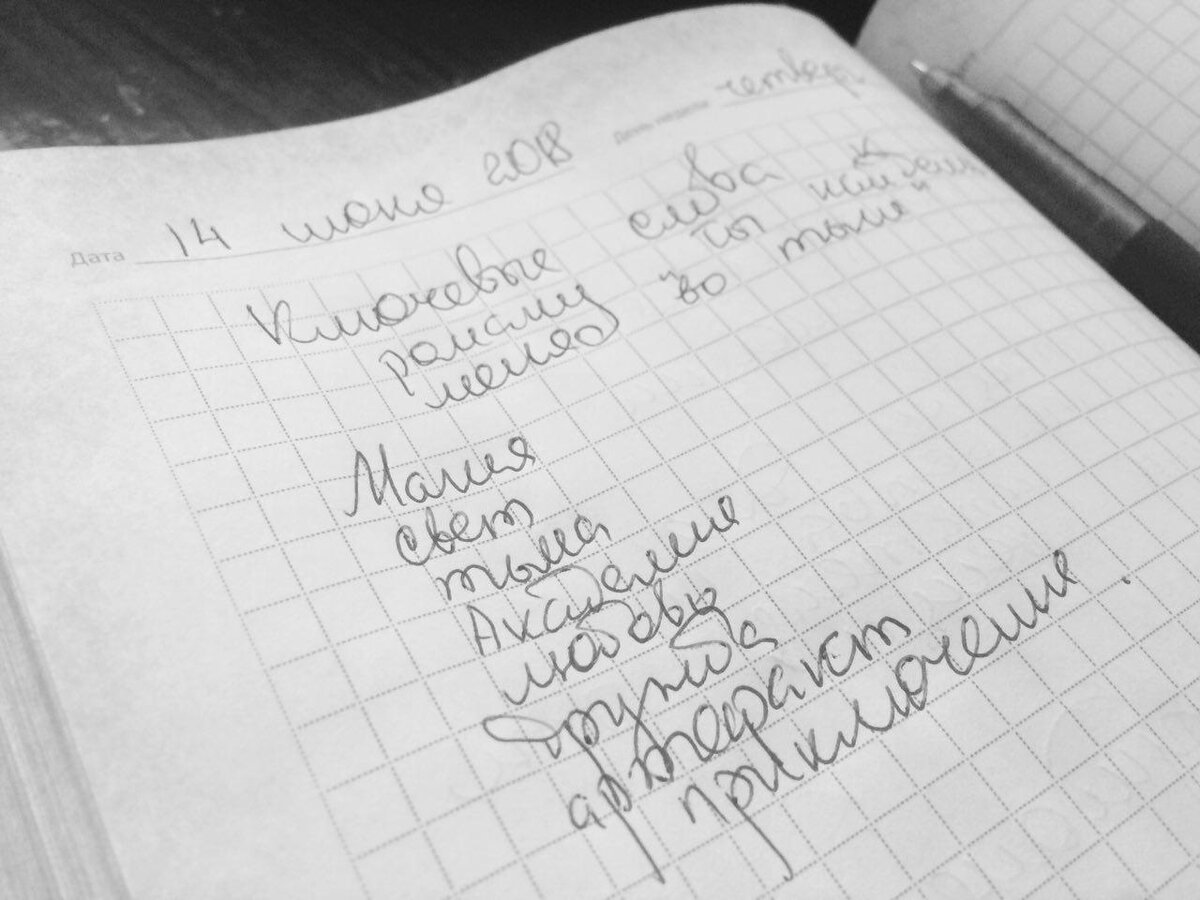 Дата 14 июня 2018 День недели четверг
Ключевые слова к
роману "Ты найдешь
меня во тьме"
Магия
свет
тьма
Академия
любовь
дружба
артефакт
приключения.